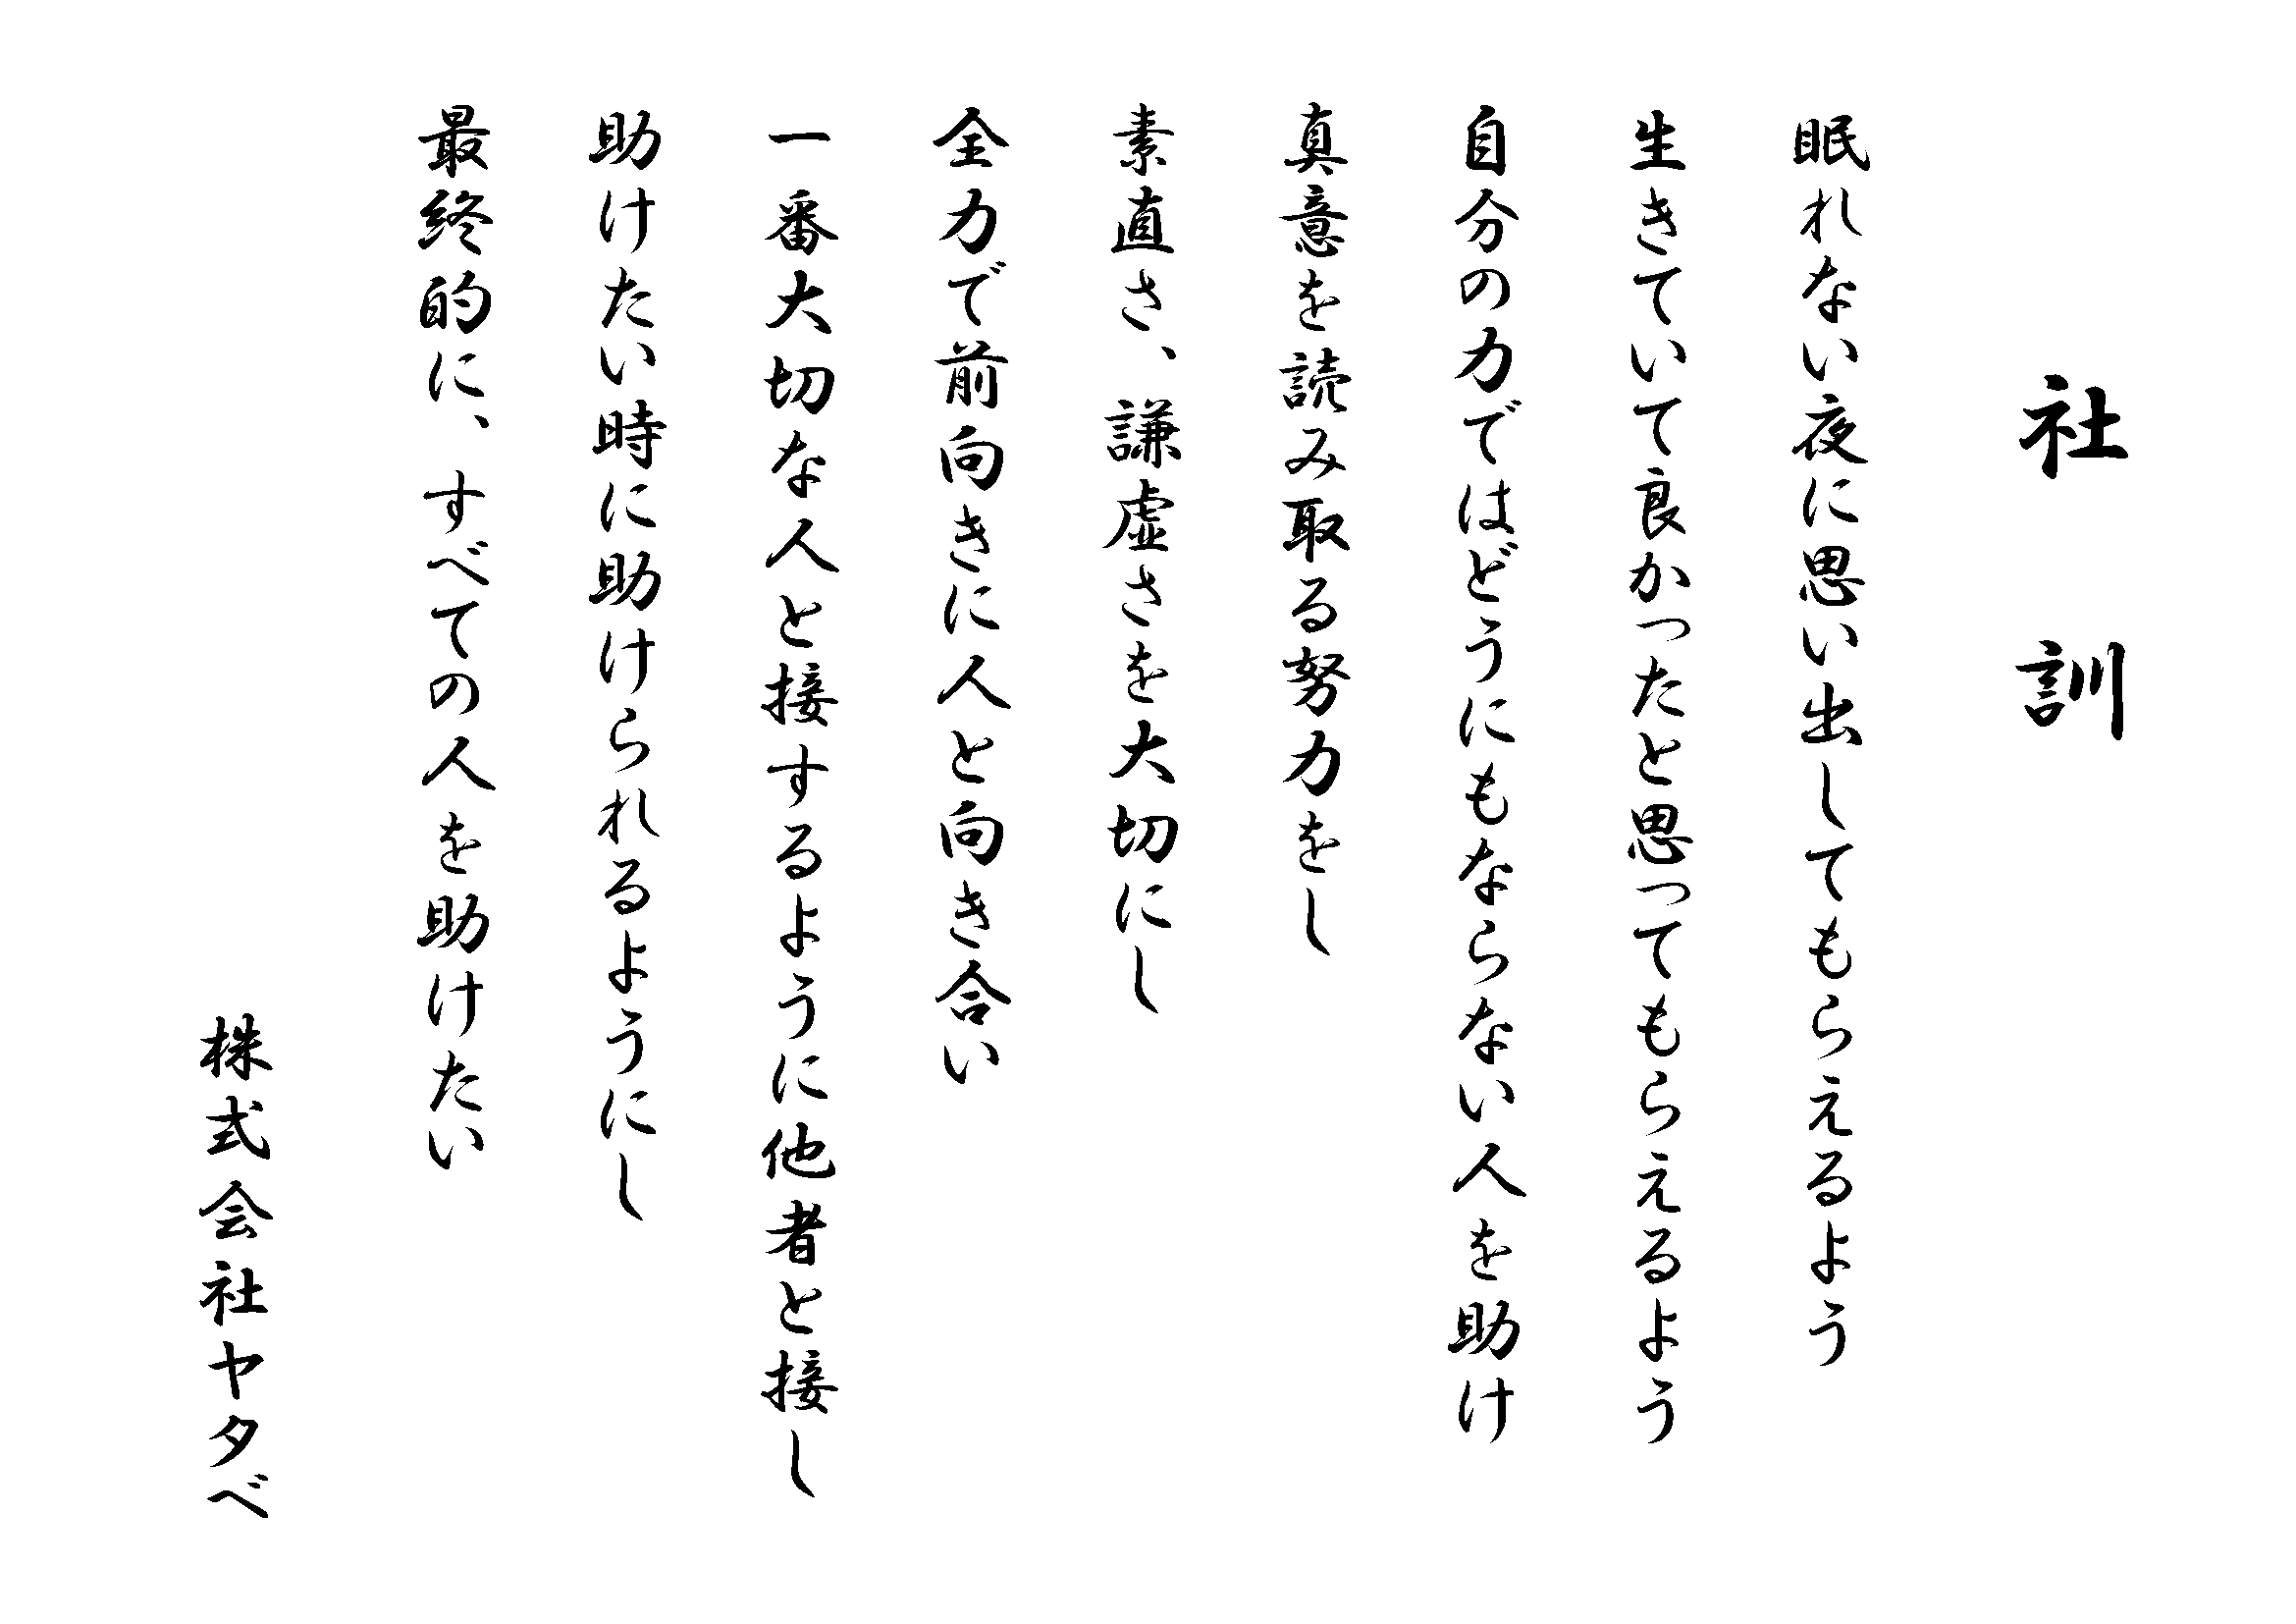 社訓
眠れない夜に思い出してもらえるよう
生きていて良かったと思ってもらえるよう
自分の力ではどうにもならない人を助け
真意を読み取る努力をし
素直さ、謙虚さを大切にし
全力で前向きに人と向き合い
一番大切な人と接するように他者と接し
助けたい時に助けられるようにし
最終的に、すべての人を助けたい
株式会社ヤタベ